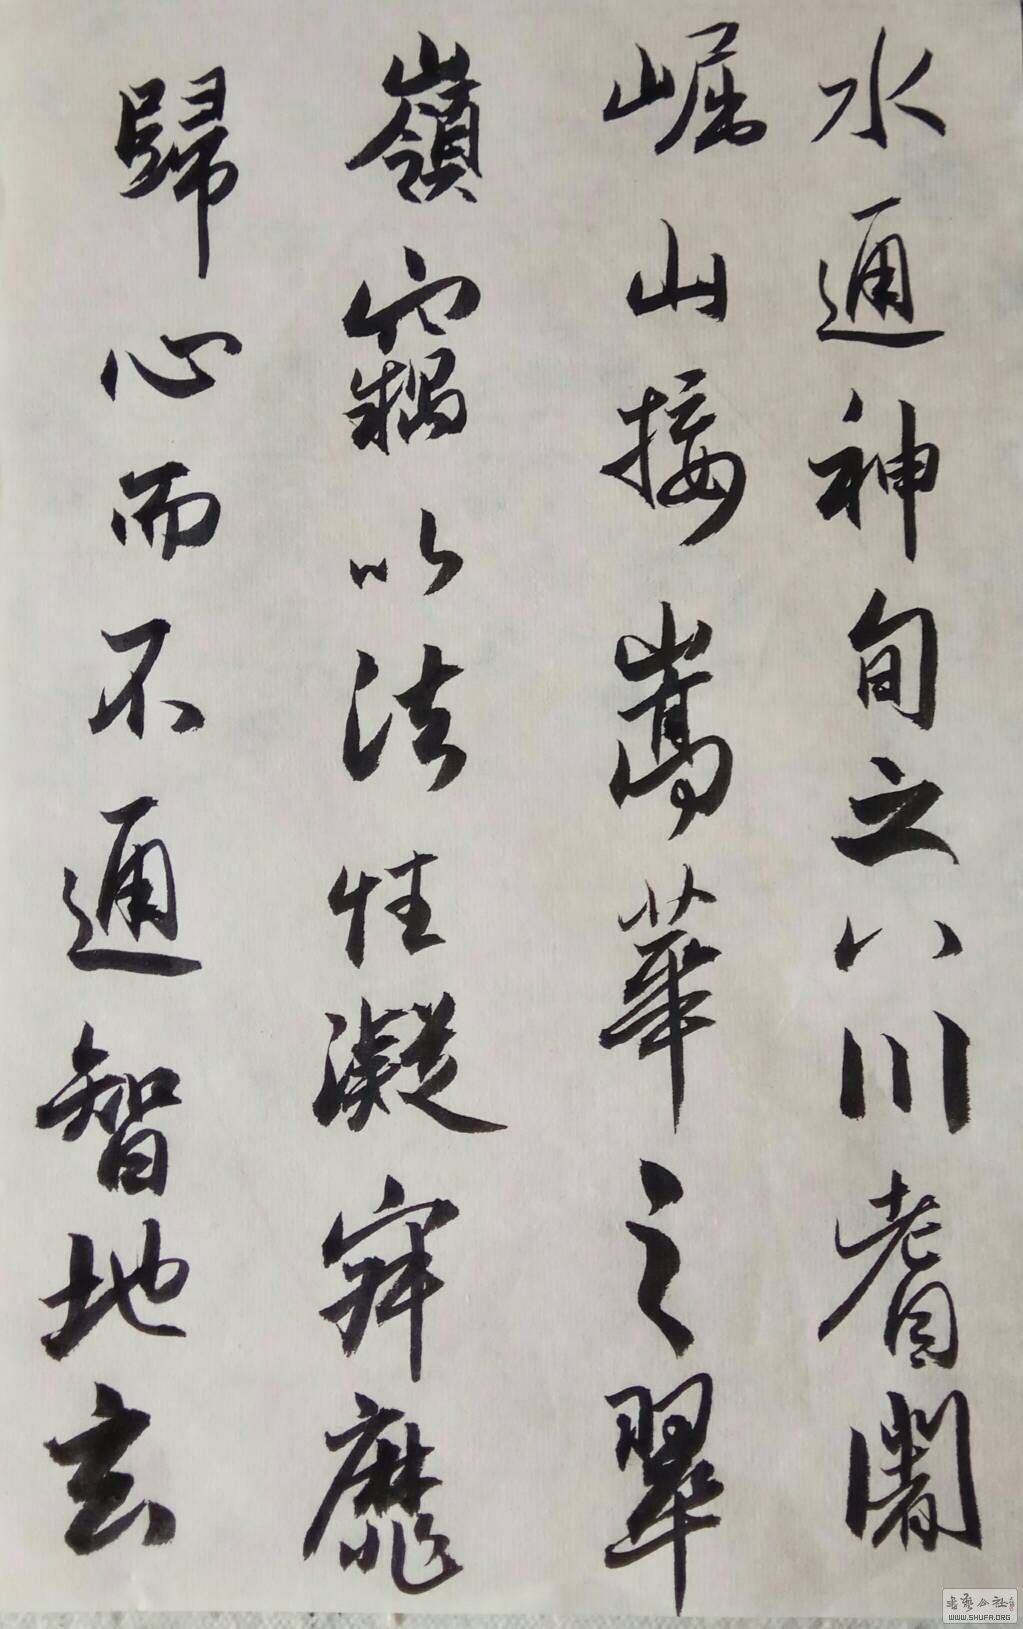 水通神甸之八川耆闍
崛山接嵩華之翠
嶺竊以法性凝寂靡
歸心而不通智地玄
書藝公社
WWW.SHUFA.ORG